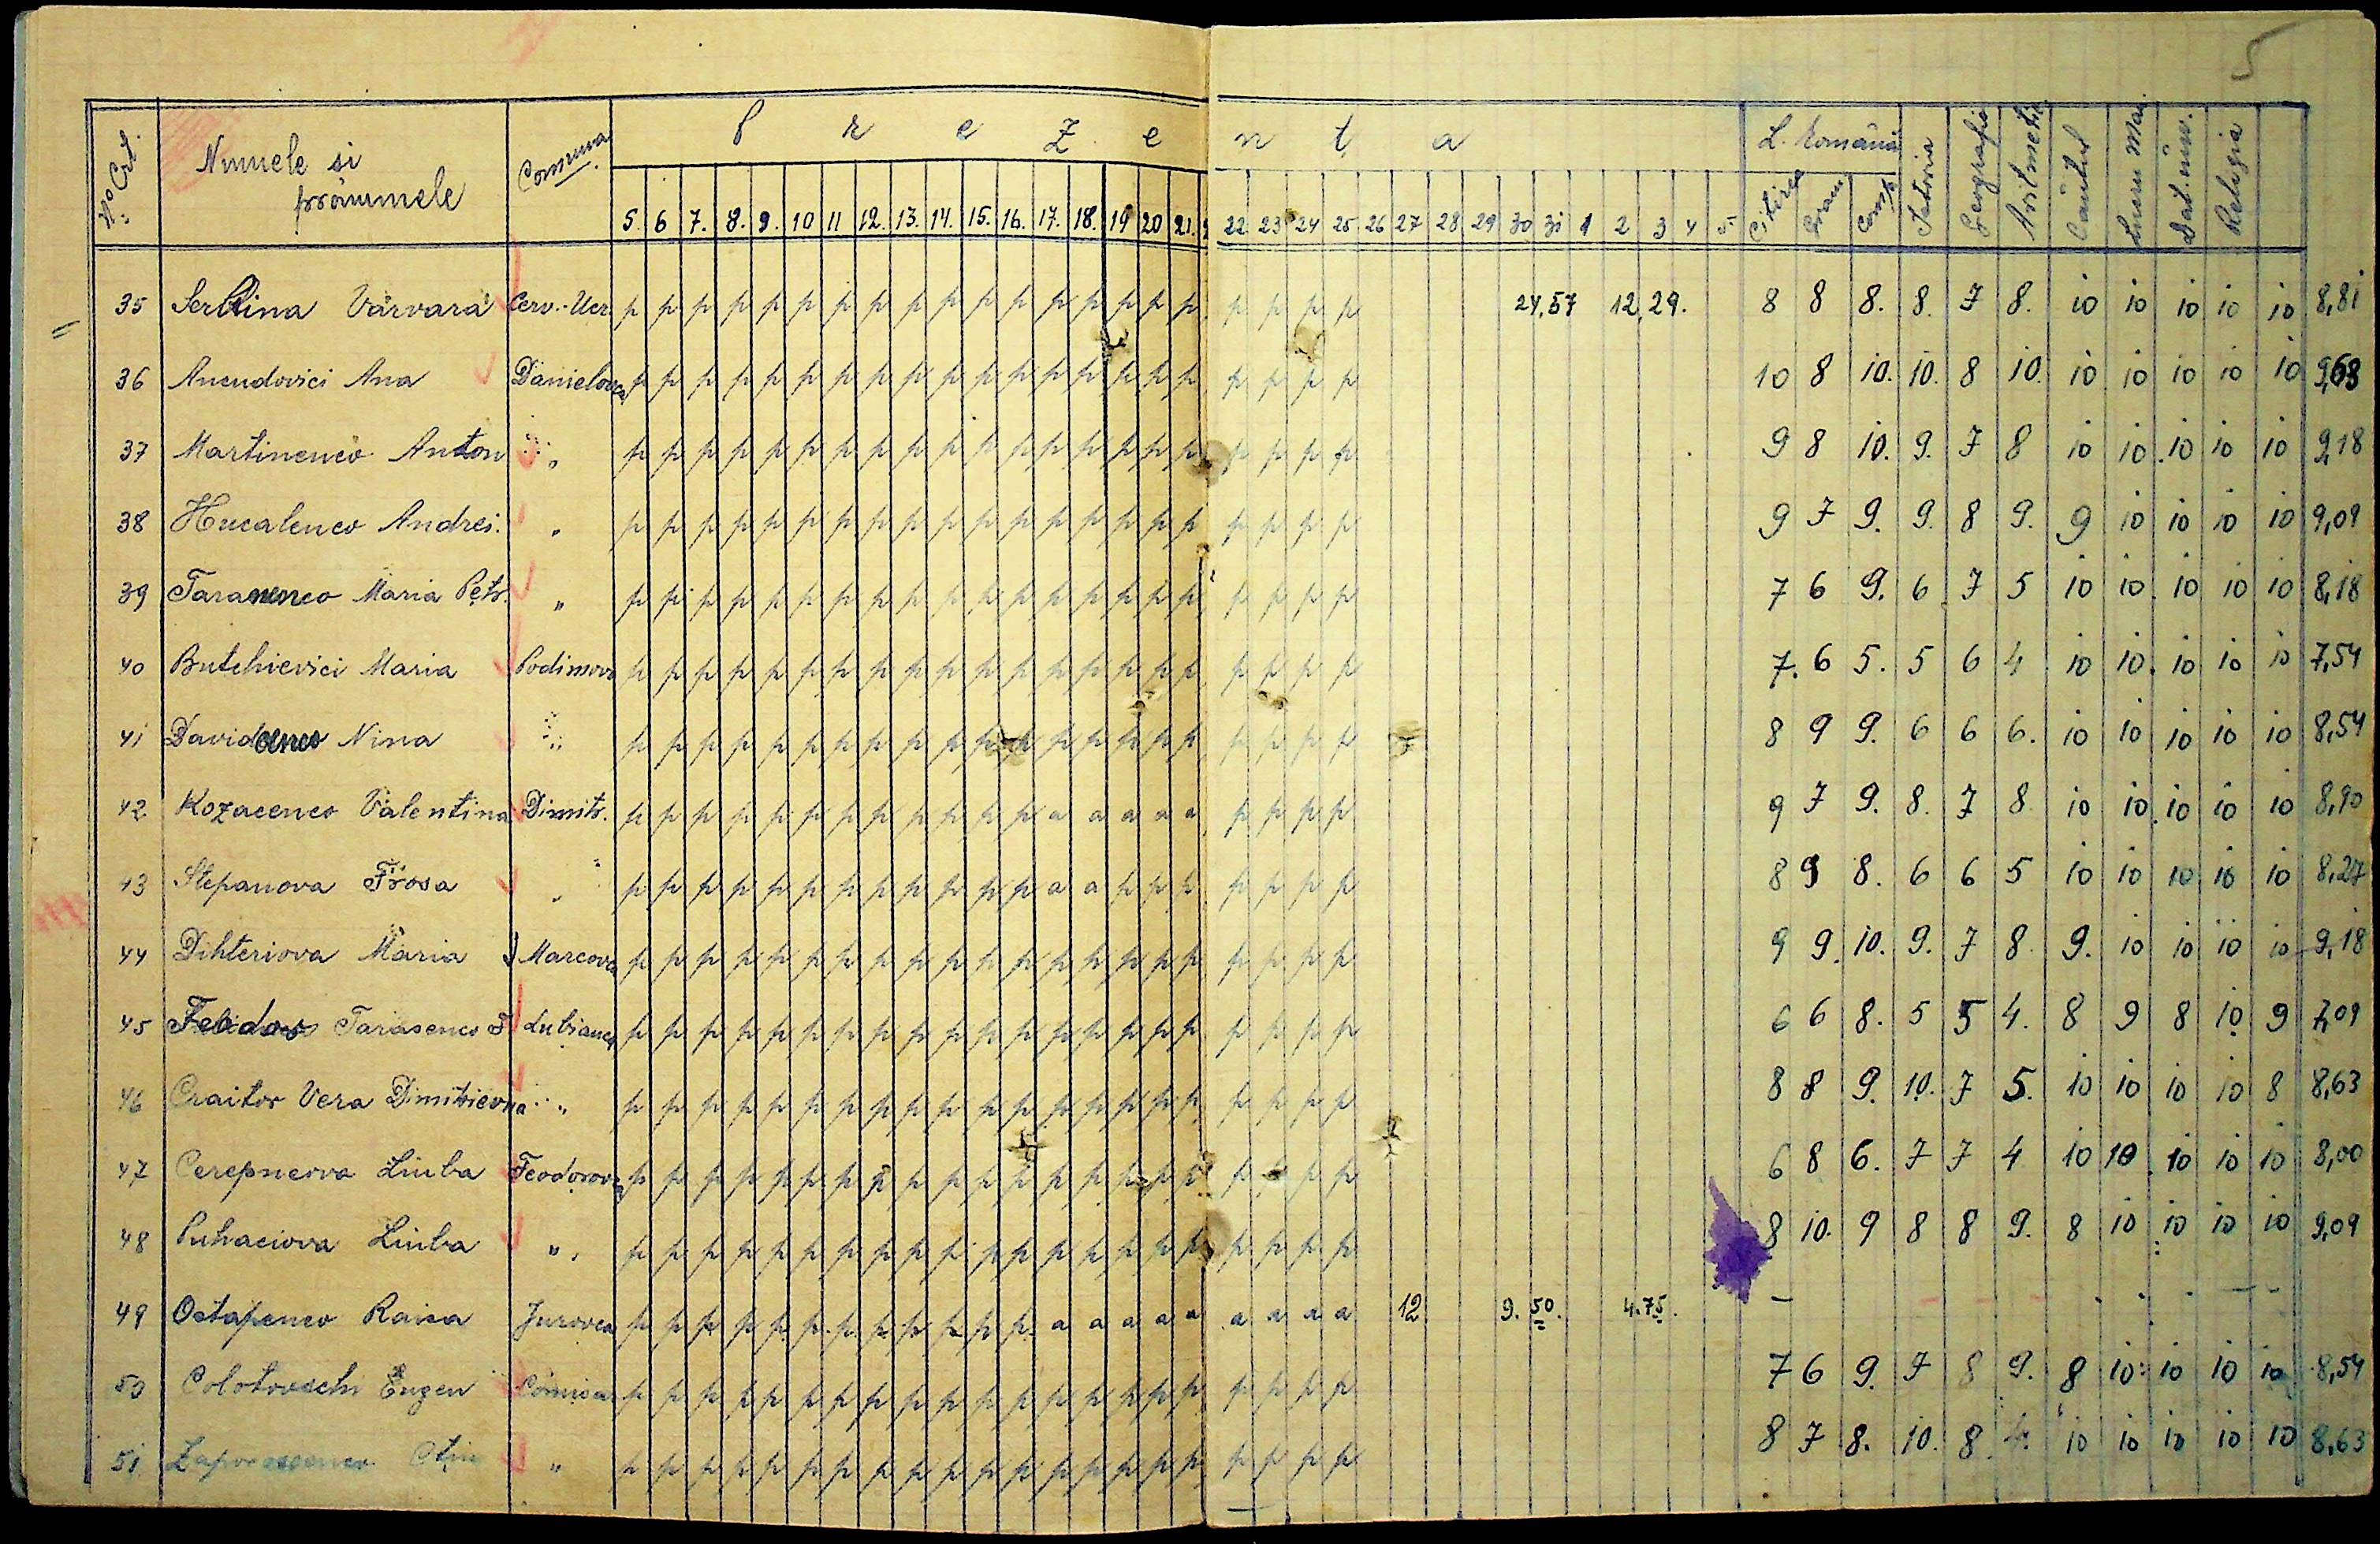 5
No Crt. Numele si prönumele Comuna P r e z e n ț a L. Română Istoria Geografie Aritmetic Cântul Lucru Man. Dat. înv. Religia
5. 6 7. 8. 9. 10 11 12. 13. 14. 15. 16. 17. 18. 19 20 21. 22 23 24 25 26 27 28 29 30 31 1 2 3 4 5 Citirea Gram Comp.
35 Serbina Varvara Cerv.-Ucr. p p p p p p p p p p p p p p p p p p p p p 24,57 12,29. 8 8 8. 8. 7 8. 10 10 10 10 10 8,81
36 Anendovici Ana Danielovca p p p p p p p p p p p p p p p p p p p p p 10 8 10. 10. 8 10. 10 10 10 10 10 9,63
37 Martinenco Anton " p p p p p p p p p p p p p p p p p p p p p 9 8 10. 9. 7 8 10 10 10 10 10 9,18
38 Hucalenco Andrei. " p p p p p p p p p p p p p p p p p p p p p 9 7 9. 9. 8 9. 9 10 10 10 10 9,09
39 Taranenco Maria Petr. " p p p p p p p p p p p p p p p p p p p p p 7 6 9. 6 7 5 10 10 10 10 10 8,18
40 Butchievici Maria Podimovo p p p p p p p p p p p p p p p p p p p p p 7. 6 5. 5 6 4 10 10 10 10 10 7,54
41 Davidenco Nina " p p p p p p p p p p p p p p p p p p p p p 8 9 9. 6 6 6. 10 10 10 10 10 8,54
42 Kozacenco Valentina Dimitr. p p p p p p p p p p p p a a a a a p p p p 9 7 9. 8. 7 8 10 10 10 10 10 8,90
43 Stepanova Frosa " p p p p p p p p p p p p a a p p p p p p p 8 9 8. 6 6 5 10 10 10 10 10 8,27
44 Dihteriova Maria Marcova p p p p p p p p p p p p p p p p p p p p p 9 9. 10. 9. 7 8. 9. 10 10 10 10 9,18
45 Feodor Tarasenco F Lubianca p p p p p p p p p p p p p p p p p p p p p 6 6 8. 5 5 4. 8 9 8 10 9 7,09
46 Craitor Vera Dimitrievna " p p p p p p p p p p p p p p p p p p p p p 8 8 9. 10. 7 5. 10 10 10 10 8 8,63
47 Cerepneova Liuba Feodorovca p p p p p p p p p p p p p p p p p p p p p 6 8 6. 7 7 4 10 10 10 10 10 8,00
48 Puhaciova Liuba " p p p p p p p p p p p p p p p p p p p p p 8 10. 9 8 8 9. 8 10 10 10 10 9,09
49 Ostapenco Raisa Jurovca p p p p p p p p p p p p a a a a a a a a a 12 9.50. 4.75. –
50 Colotovschi Eugen Cornica p p p p p p p p p p p p p p p p p p p p p 7 6 9. 7 8 9. 8 10 10 10 10 8,54
51 " p p p p p p p p p p p p p p p p p p p p p 8 7 8. 10. 8 10 10 10 10 10 8,63